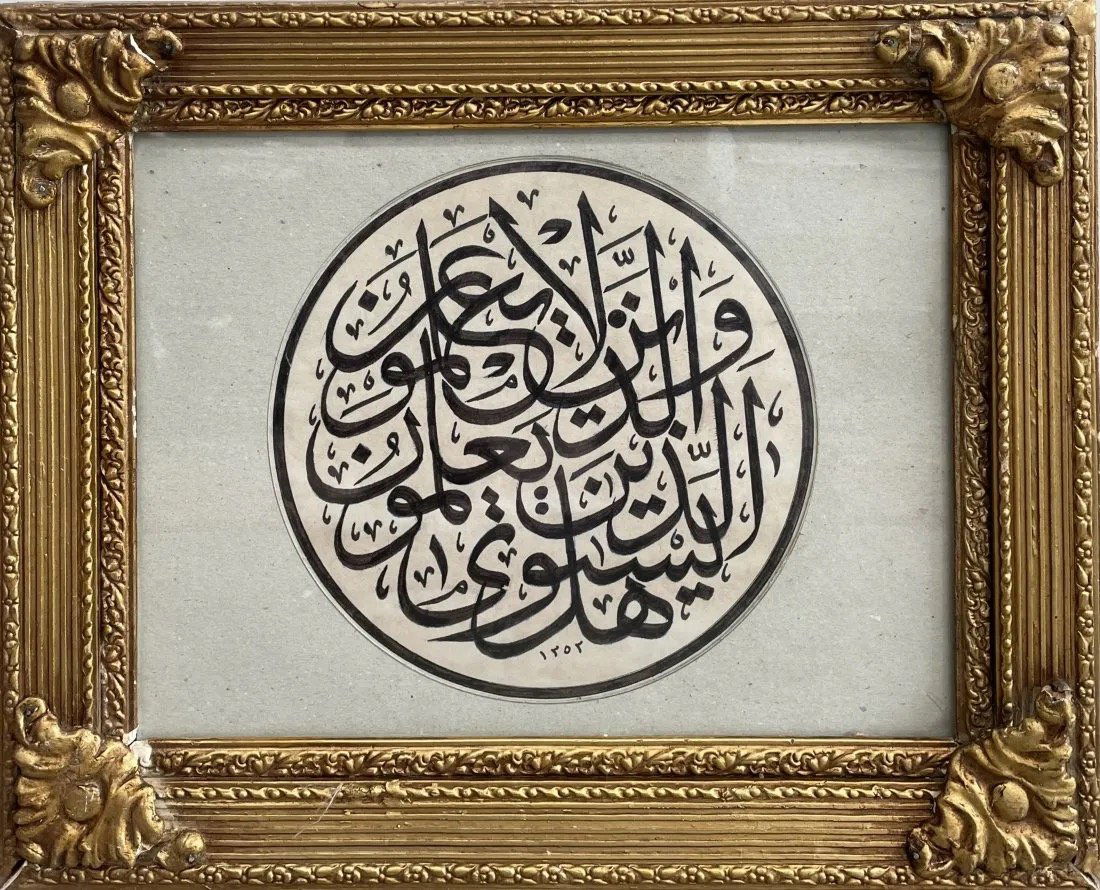 هل يستوى
الَّذين يعلمونَ
وَالَّذين لا يعلمونَ
١٣٥٣